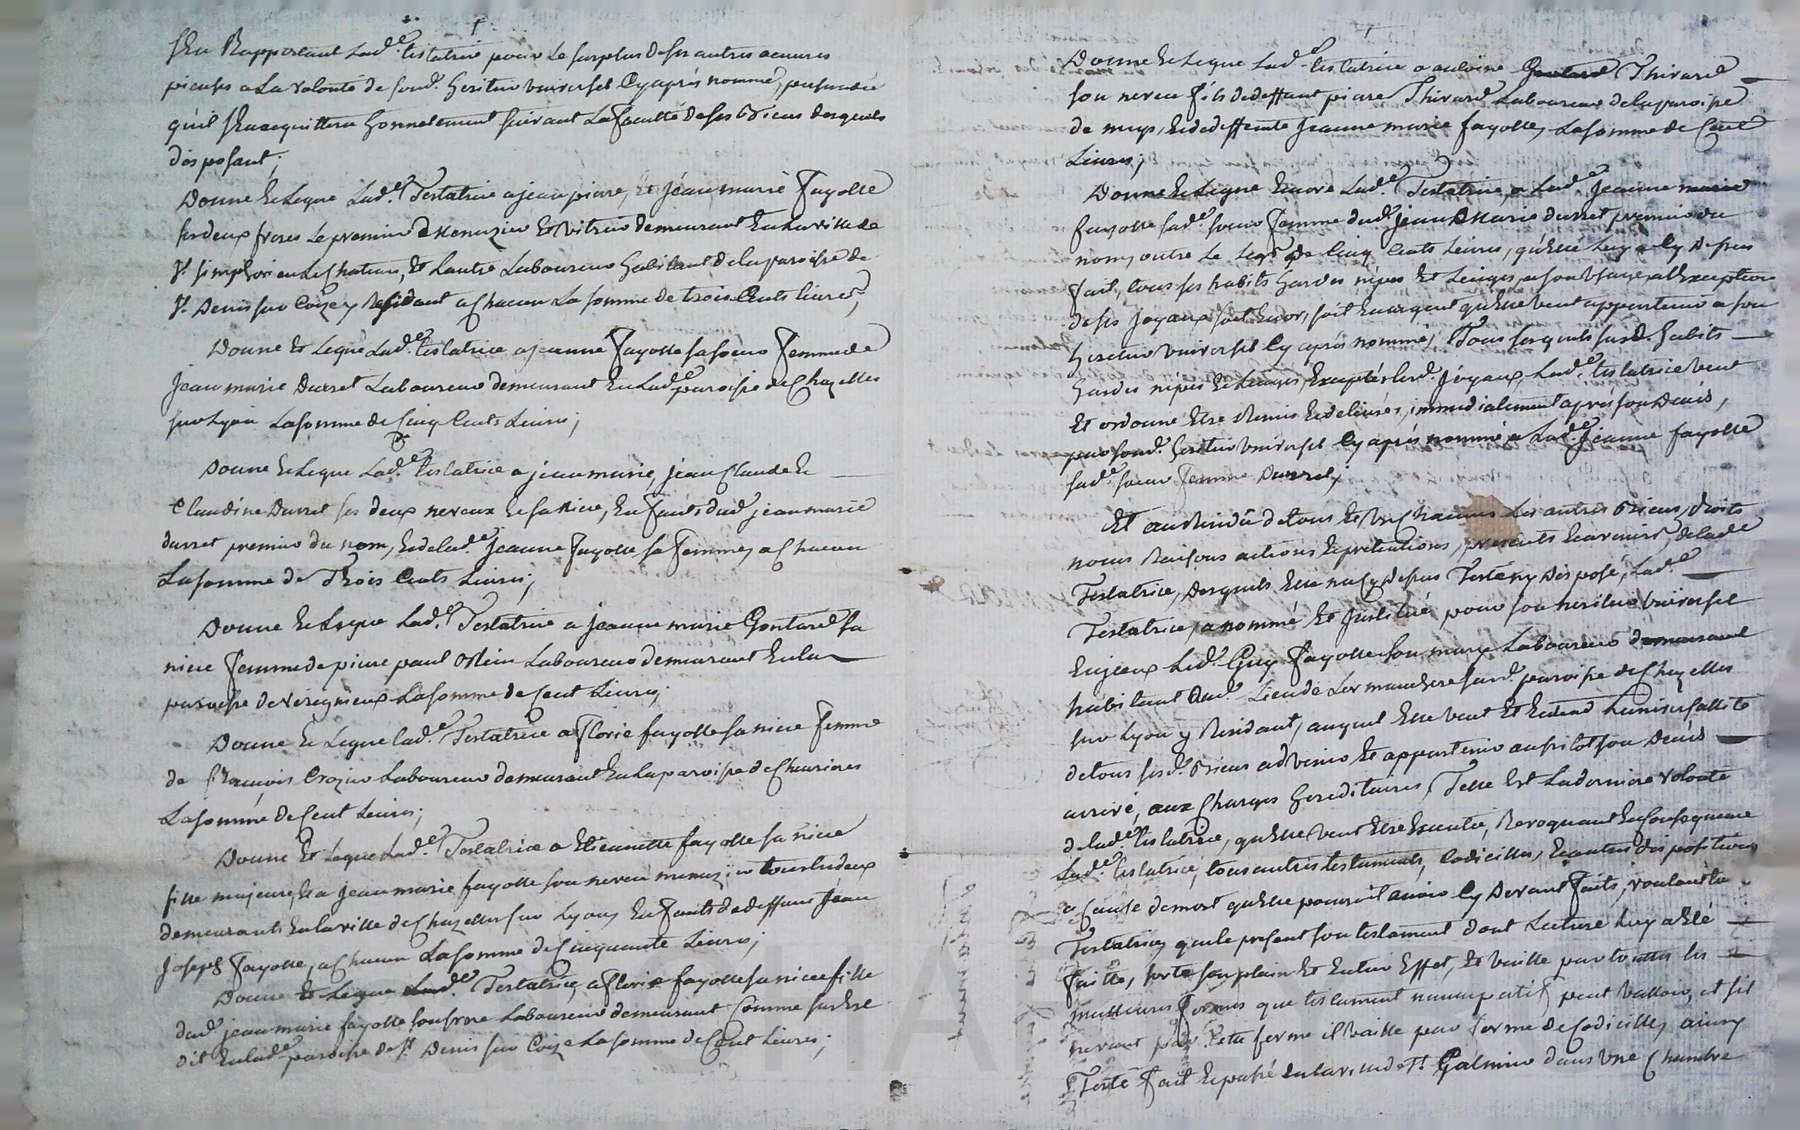 S'En Rapportant Lad.e testatrice pour le surplus de ses autres oeuvres
pieuses a La volonté de sond. heritier universel Cy après nommé, persuadée
qu'il s'En acquittera honnetement suivant La faculté de ses Biens desquels
disposant;
Donne Et Legue Lad.e Testatrice a jean piere, Et jean marie Fayolle
ses deux freres Le premier Menuzier Et vitrier demeurant En La ville de
s.t simphorien Le chateau, Et Lautre Laboureur habitant de La paroisse de
s.t Denis sur Coize y Residant a chacun La somme de trois Cents livres,
Donne Et Legue Lad.e testatrice a jeanne Fayolle sa soeur Femme de
Jean marie Durret Laboureur demeurant En Lad.e paroisse de Chazelles
sur Lyon La somme de Cinq Cents Livres;
Donne Et Legue Lad.e testatrice a jean marie, jean Claude Et
Claudine Durret ses deux neveux Et sa Niece, Enfants dud. jean marie
durret premier du nom, Et de lad.e Jeanne Fayolle sa Femme, a chacun
La somme de Trois Cents Livres;
Donne Et Legue Lad.e Testatrice a jeanne marie Gontard sa
niece Femme de piere paul Laboureur demeurant En la
paroisse de veregnieux La somme de Cent Livres;
Donne Et Legue lad.e Testatrice a Florie fayolle sa niece Femme
de francois Crozier Laboureur demeurant En La paroisse de Chevrieres
La somme de Cent Livres;
Donne Et Legue Lad.e Testatrice a Etiennette fayolle sa niece
fille majeure, Et a jean marie fayolle son neveu menuzier tous les deux
demeurants En la ville de Chazelles sur Lyon Enfants de deffunt Jean
Joseph Fayolle, a chacun La somme de Cinquante Livres;
Donne Et Legue Lad.e Testatrice, a Florie fayolle sa niece fille
dud. jean marie fayolle son frere Laboureur demeurant Comme sus Est
dit En lad.e paroisse de s.t Denis sur Coize La somme de Cent Livres;
Donne Et Legue Lad.e testatrice a antoine Thivard
son neveu fils de deffunt piere Thivard Laboureur de la paroisse
de meys, Et de deffunte Jeanne marie fayolle, La somme de Cent
Livres;
Donne Et Legue Encore Lad.e Testatrice, a Lad.e Jeanne marie
fayolle sad.e soeur Femme dud. jean Marie durret premier du
nom, outre Le Legs de Cinq Cents Livres, qu'Elle Luy a Cy Dessus
fait, tous ses habits hardes nipes Et Linges a son usage, a l'Exception
de ses joyaux soit En or, soit En argent qu'Elle veut appartenir a son
heritier universel Cy après nommé, Tous lesquels susd. habits
hardes nipes Et Linges, Exceptés lesd. joyaux, Lad.e testatrice veut
Et ordonne Etre Remis Et delivrés, immediatement après son Decès,
par sond. heritier universel Cy après nommé a Lad.e Jeanne fayolle
sad.e soeur Femme Durret;
Et au Residu de tous Et un chacuns Les autres Biens, droits
noms Raisons actions Et pretentions, presents Et avenirs, de lad.e
Testatrice, desquels Elle n'a Cy dessus Testé ny Disposé, Lad.e
Testatrice, a nommé Et Institué pour son heritier universel
Led. Guy Fayolle son mary Laboureur demeurant
habitant aud. Lieu de susd. paroisse de Chazelles
sur Lyon y Residant, auquel Elle veut Et Entend L'universallité
de tous sesd. Biens advenir Et appartenir aussitôt son Decès
arrivé, aux charges hereditaires, Telle Est La derniere volonté
de lad.e testatrice, qu'Elle veut Etre Executée, Revoquant En Consequence
Lad.e testatrice, tous autres testaments, Codicilles, Et autres dispositions
a Cause de mort qu'Elle pourroit avoir Cy Devant faits, voulant La
Testatrice, que le present son testament dont Lecture Luy a Eté
Faitte, sorte son plain Et Entier Effet, Et vaille par touttes les
meilleures formes que testament nuncupatif peut valloir, et s'il
ne vaut par Cette forme il vaille par forme de Codicille, ainsy
Testé fait Et passé En la ville de s.t Galmier dans une chambre